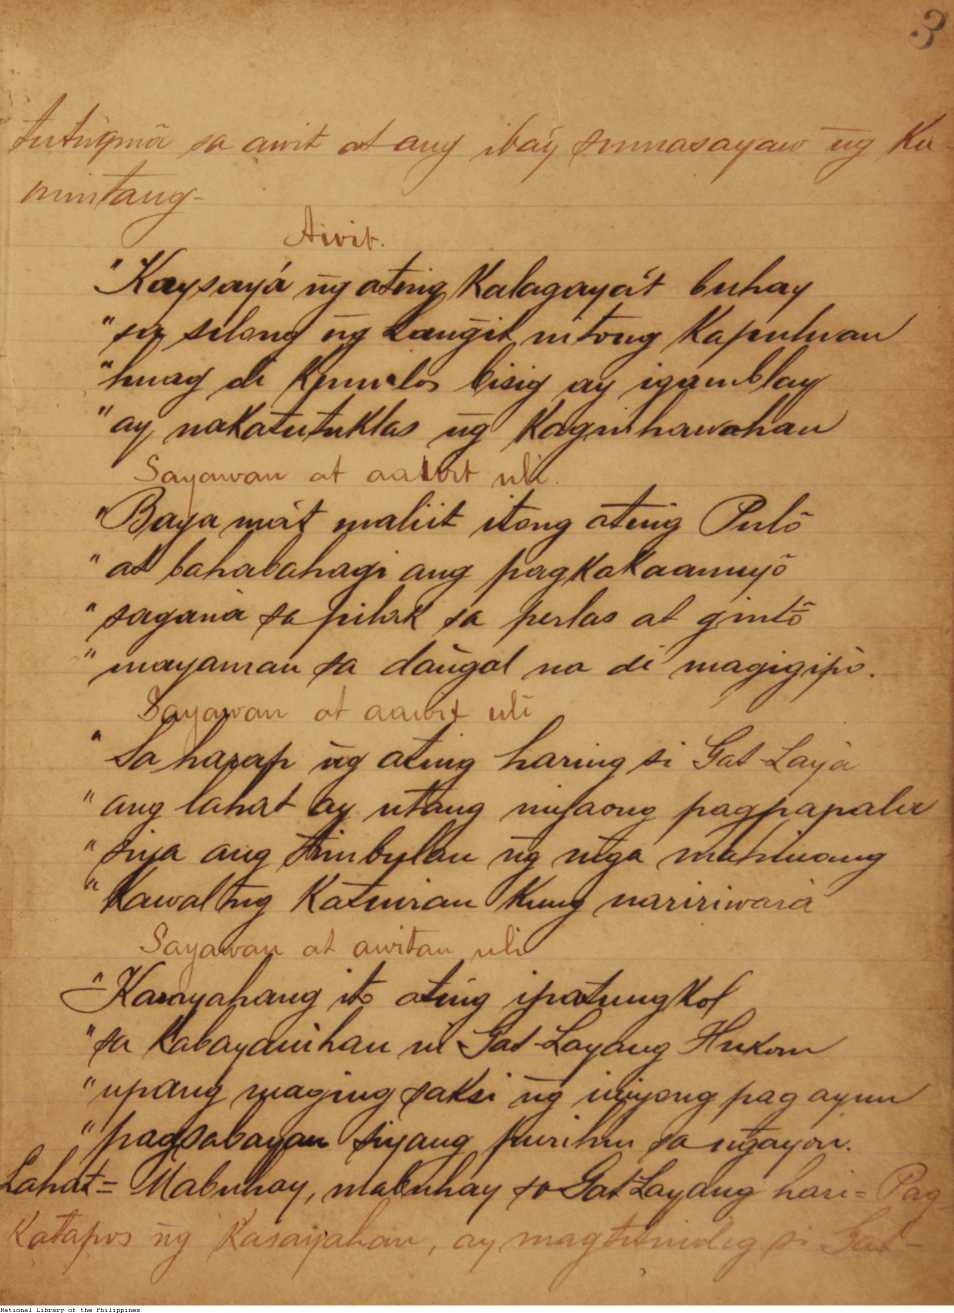 3
tutugmâ sa awit at ang ibáy sumasayaw n͠g Ku-
mintang-
Awit.
"Kaysayá n͠g ating Kalagayá't buhay
"sa silong n͠g Lan͠git nitong Kapuluan
"huag di Kumilos bisig ay igamblay
"ay nakatutuklas n͠g Kaginhawahan
Sayawan at aawit uli.
"Baga má't maliit itong ating Pulô
"at bahabahagi ang pagkakaanyô
"sagana sa pilak sa perlas at gintô
"mayaman sa dan͠gal na di magigipô.
Sayawan at aawit uli
"Sa harap n͠g ating haring si Gat-Layà
"ang lahat ay utang niyaong pagpapala
"siya ang timbulan n͠g mga mahinang
"Kawal n͠g Katuiran Kung naririwará
Sayawan at awitan uli
"Kasayahang ito ating ipatungkol
"sa Kabayanihan ni Gat-Layang Hukom
"upang maging saksi n͠g iniyong pag ayun
"pagsabayan siyang purihin sa n͠gayon.
Lahat = Mabuhay, mabuhay si Gat Layang hari = Pag-
Katapos n͠g Kasayahan, ay magtitindig si Gat-
National Library of the Philippines